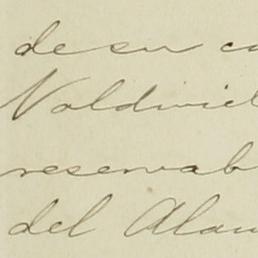 de su ca
Valdiviel
reservab
del Alam